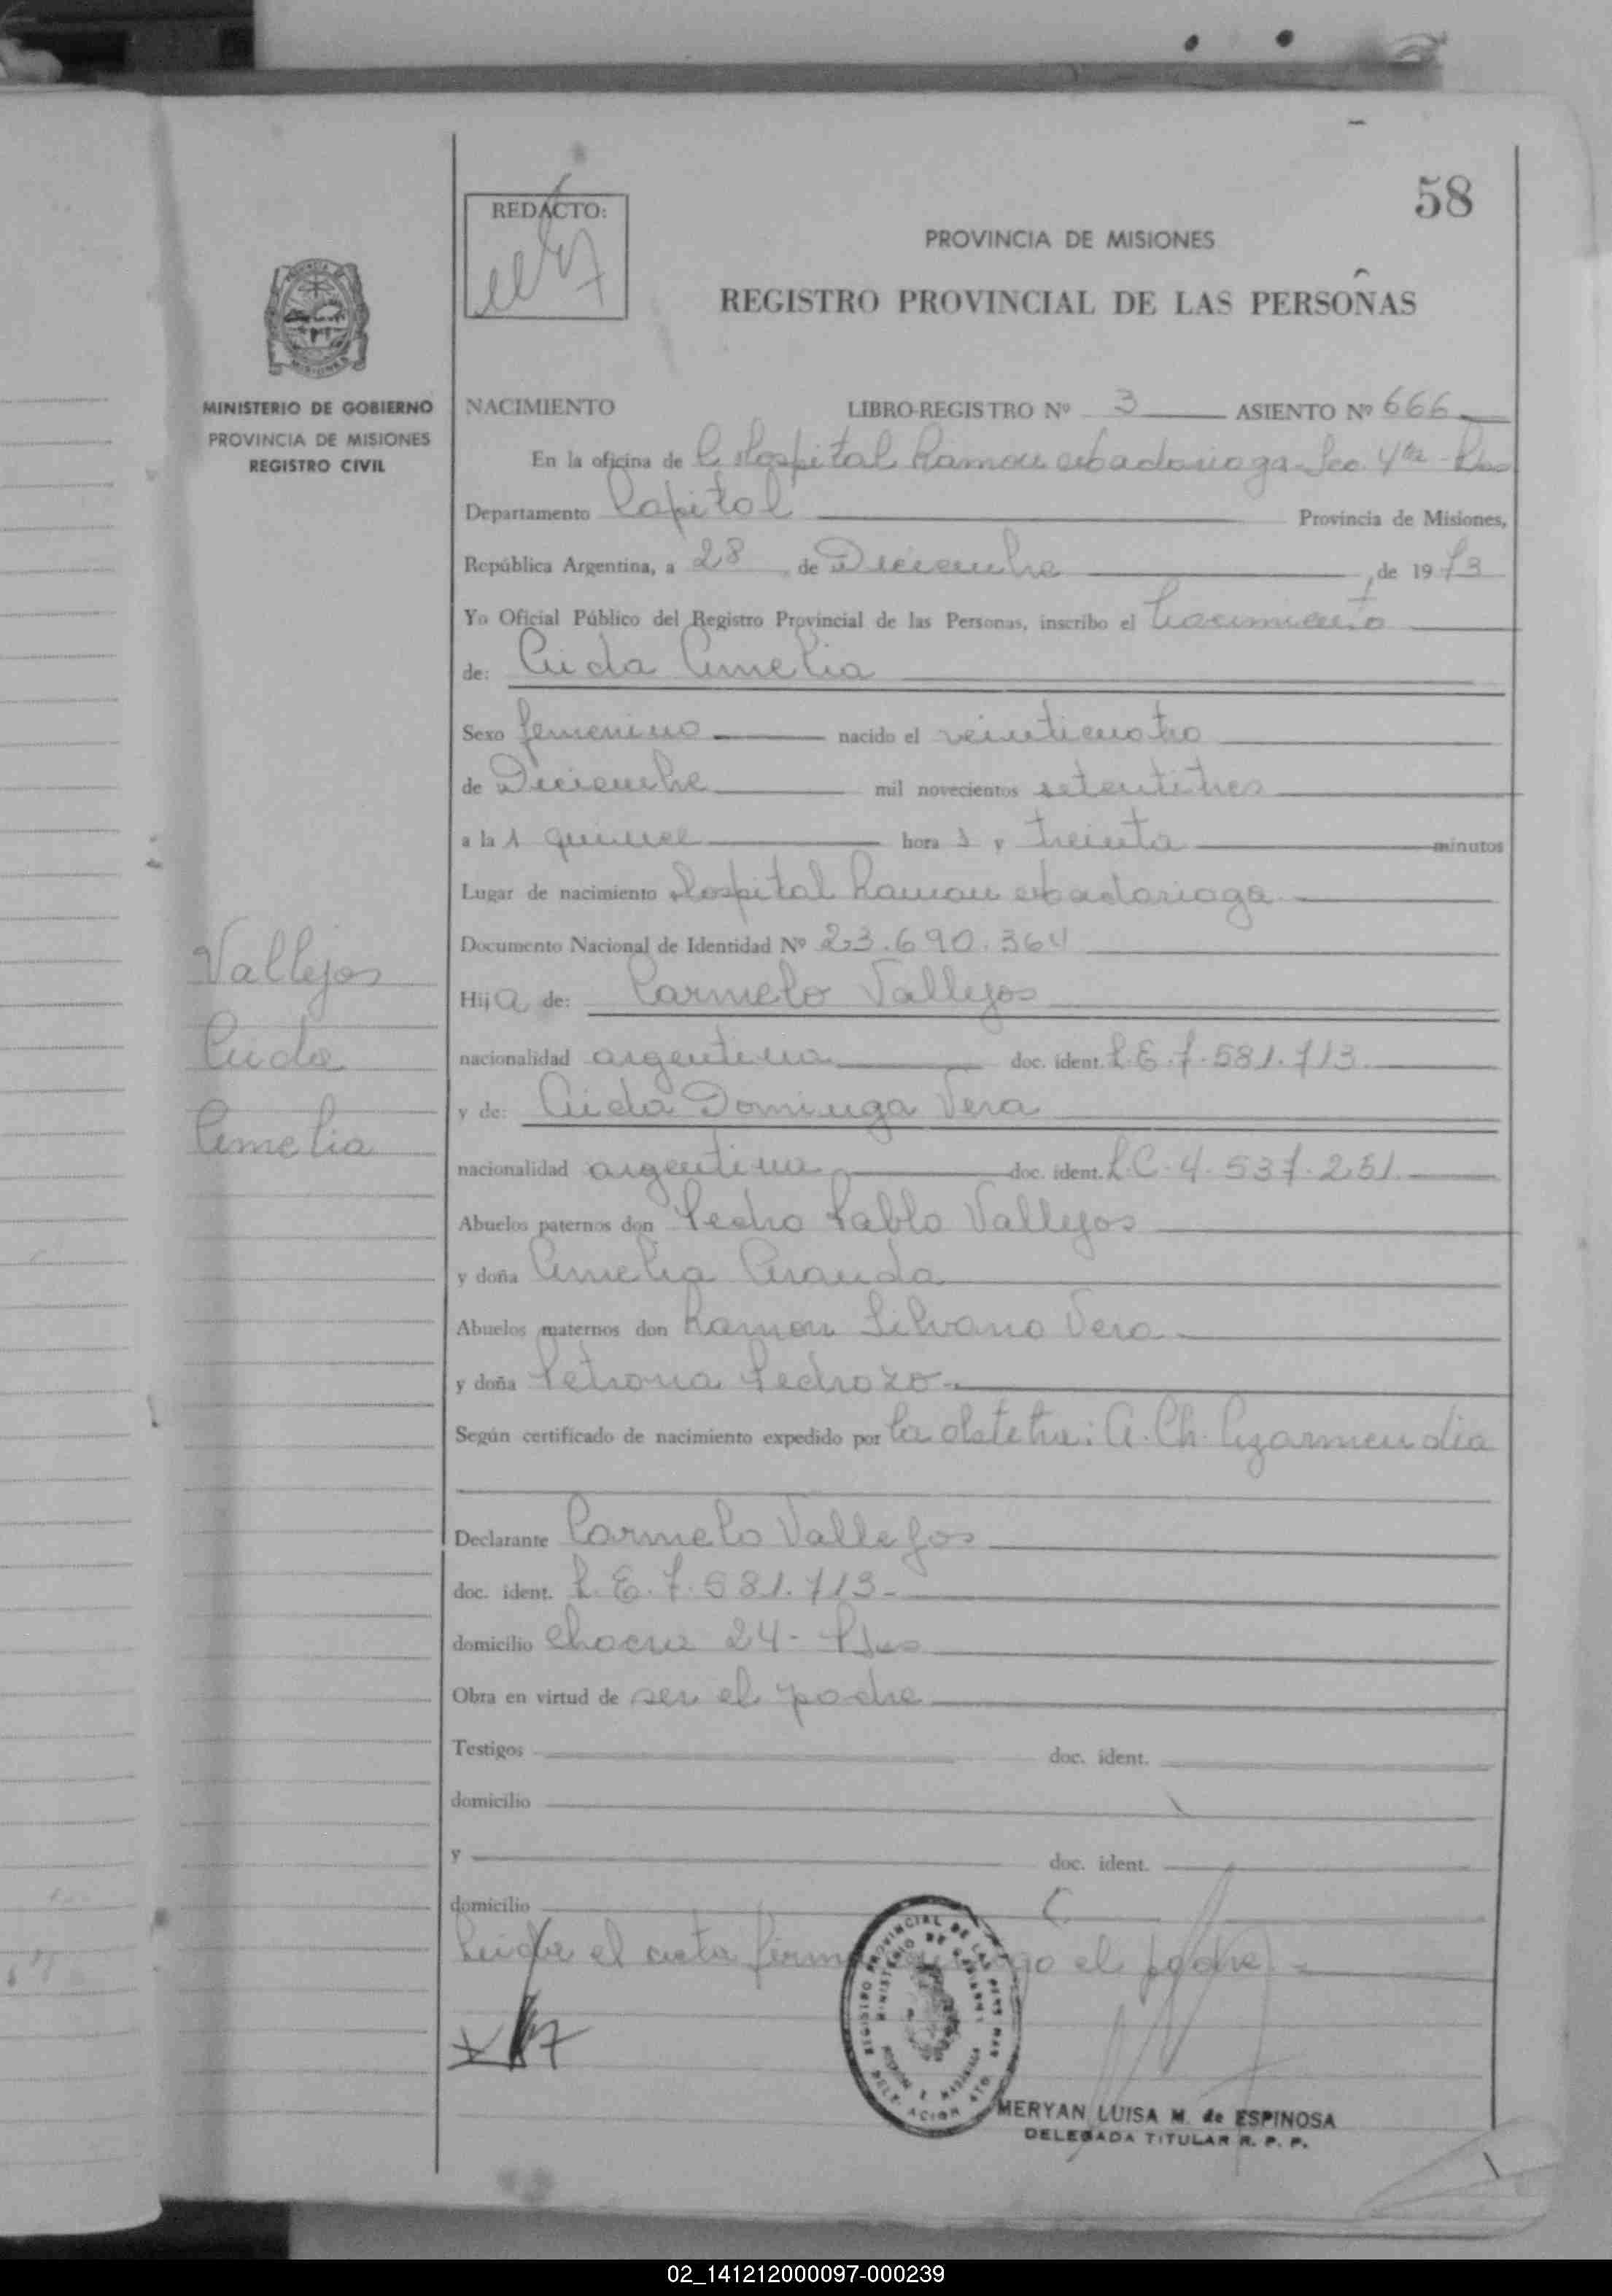 58
REDACTO:
PROVINCIA DE MISIONES
REGISTRO PROVINCIAL DE LAS PERSONAS
MINISTERIO DE GOBIERNO
PROVINCIA DE MISIONES
REGISTRO CIVIL
NACIMIENTO LIBRO-REGISTRO Nº 3 ASIENTO Nº 666
En la oficina de Hospital Ramon Madariaga Sec. 4ta
Departamento Capital Provincia de Misiones,
República Argentina, a 28 de Diciembre de 1973
Yo Oficial Público del Registro Provincial de las Personas, inscribo el nacimiento
de: Aida Amelia
Sexo femenino nacido el veinticuatro
de Diciembre mil novecientos setentitres
a la s quince hora s y treinta minutos
Lugar de nacimiento Hospital Ramon Madariaga
Documento Nacional de Identidad Nº 23.690.364
Vallejos
Aida
Amelia
Hija de: Carmelo Vallejos
nacionalidad argentina doc. ident. L.E.7.581.713
y de: Aida Dominga Vera
nacionalidad argentina doc. ident. L.C.4.537.251
Abuelos paternos don Pedro Pablo Vallejos
y doña Amelia Aranda
Abuelos maternos don Ramon Silvano Vera
y doña Petrona Pedrozo
Según certificado de nacimiento expedido por la obstetra: A. Ch. Azarmendia
Declarante Carmelo Vallejos
doc. ident. L.E.7.581.713-
domicilio Chacra 24-
Obra en virtud de ser el padre
Testigos doc. ident.
domicilio
y doc. ident.
domicilio
el acta el padre
REGISTRO PROVINCIAL DE LAS PERSONAS
MINISTERIO DE GOBIERNO
MERYAN LUISA M. de ESPINOSA
DELEGADA TITULAR R. P. P.
02_141212000097-000239